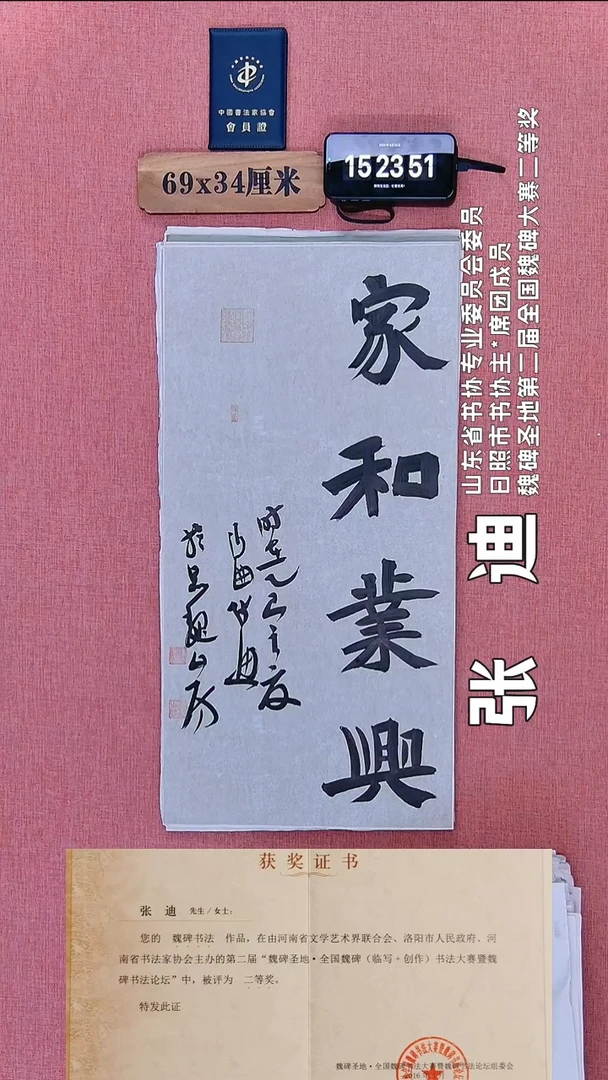 中國書法家協會
會員證
69x34厘米
15 23 51
山东省书协专业委员会委员
日照市书协主*席团成员
魏碑圣地第二届全国魏碑大赛二等奖
张 迪
家和業興
获奖证书
张 迪 先生/女士:
您的 魏碑书法 作品,在由河南省文学艺术界联合会、洛阳市人民政府、河
南省书法家协会主办的第二届“魏碑圣地·全国魏碑(临写+创作)书法大赛暨魏
碑书法论坛”中,被评为 二等奖。
特发此证
魏碑圣地·全国魏碑书法大赛暨魏碑书法论坛组委会